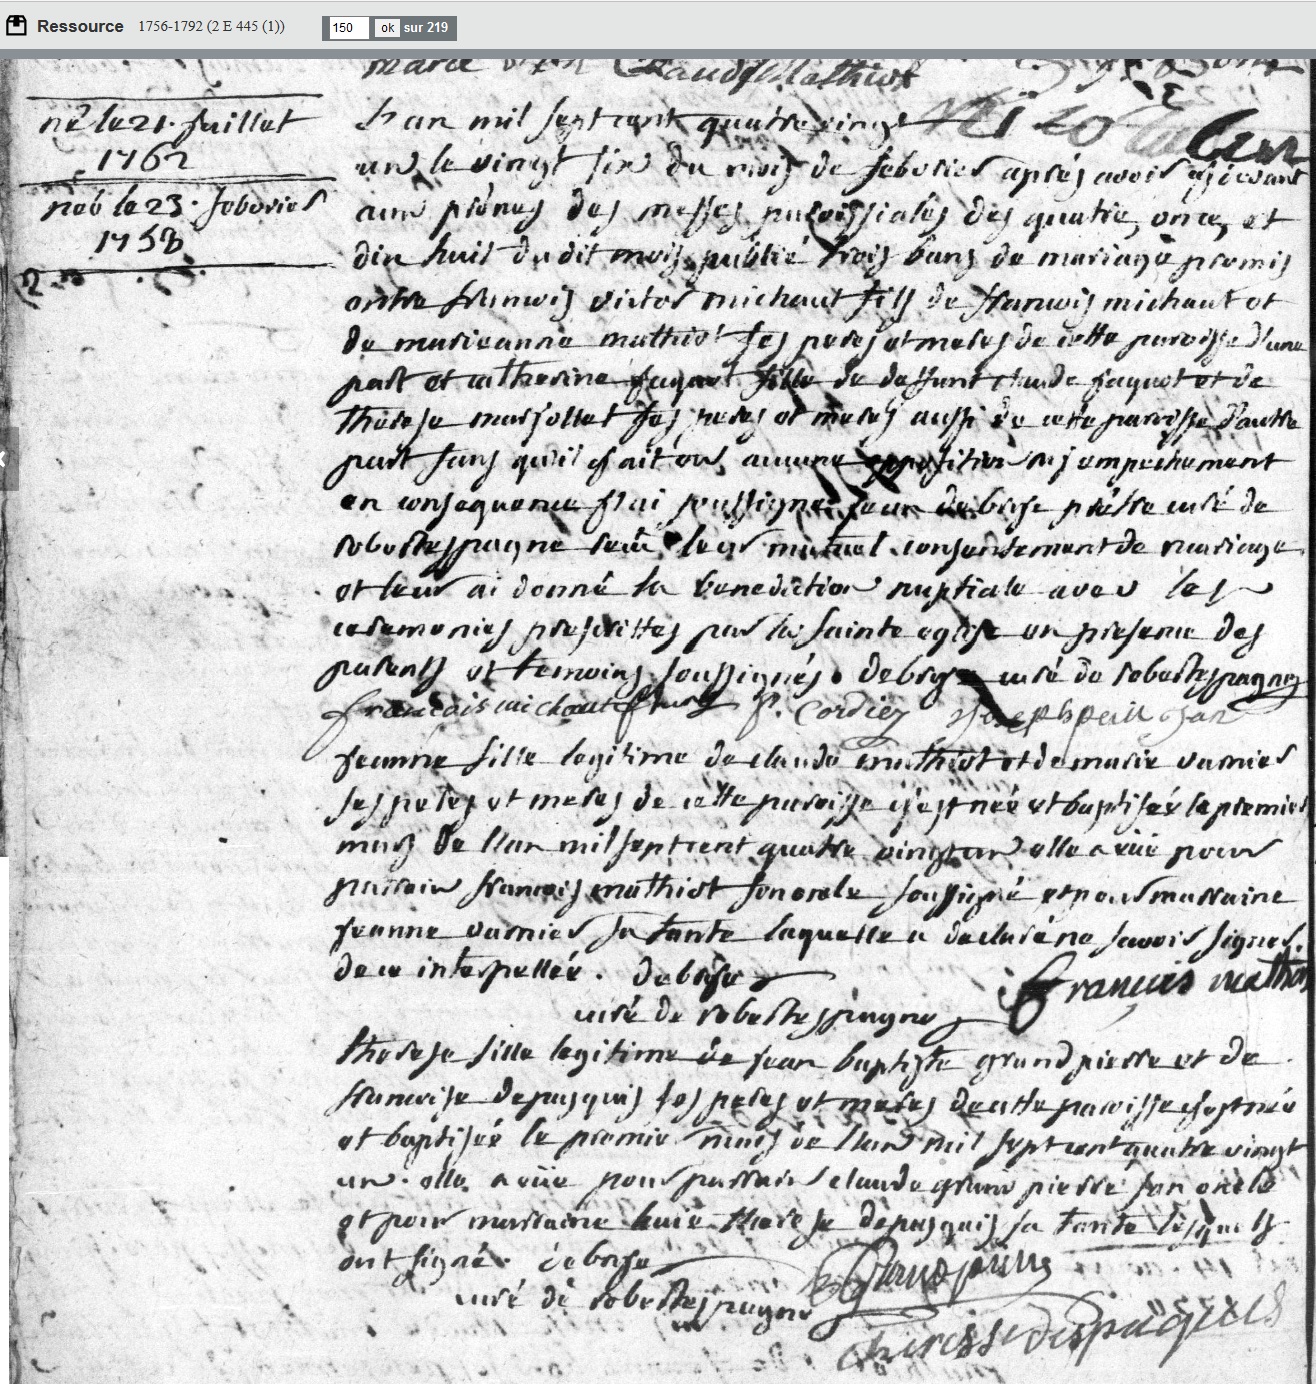 Ressource 1756-1792 (2 E 445 (1)) 150 ok sur 219
Claude Mathiot
né le 21. juillet
1762
néé le 23. febvrier
1758
L'an mil sept cent quatre vingt
un le vingt six du mois de febvrier aprés avoir cy devant
aux prônes des messes paroissiales des quatre, onze, et
dix huit du dit mois publié trois bans de mariage promis
entre francois victor michaut fils de francois michaut et
de marieanne mathiot ses peres et meres de cette paroisse d'une
part et catherine jaquot fille de deffunt claude jaquot et de
therese marjollet ses peres et meres aussi de cette paroisse d'autre
part sans qu'il y ait eu aucune opposition ny empechement
en consequence j'ai soussigné jean debrise prêtre curé de
robertespagne reçu leur mutuel consentement de mariage
et leur ai donné la benediction nuptiale avec les
ceremonies prescrittes par la sainte eglise en presence des
parents et temoins soussignés. debrise curé de robertespagne
francais michaut P. Cordier Joseph
jeanne fille legitime de claude mathiot et de marie varnier
ses peres et meres de cette paroisse est née et baptisée le premier
mars de l'an mil sept cent quatre vingt un elle a eüe pour
parrain francois mathiot son oncle soussigné et pour marraine
jeanne varnier sa tante laquelle a declaré ne scavoir signer.
de ce interpellée. debrise
Francois mathiot
curé de robertespagne
therese fille legitime de jean baptiste grandpierre et de
francoise depasquis ses peres et meres de cette paroisse est née
et baptisée le premier mars de l'an mil sept cent quatre vingt
un. elle a eüe pour parrain claude grand pierre son oncle
et pour marraine therese depasquis sa tante lesquels
ont signé. debrise
Grandpierre
curé de robertespagne
theresse despaquis